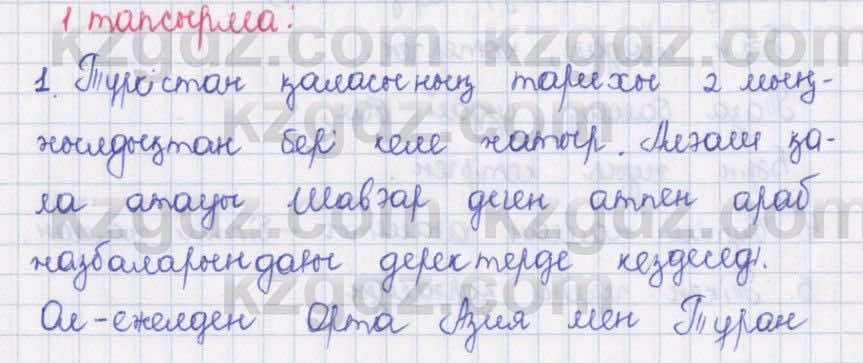 1 тапсырма:
1. Түркістан қаласының тарихы 2 мың-
жылдықтан бері келе жатыр. Алғаш қа-
ла атауы Шавғар деген атпен араб
жазбаларындағы деректерде кездеседі.
Ол-ежелден Орта Азия мен Тұран